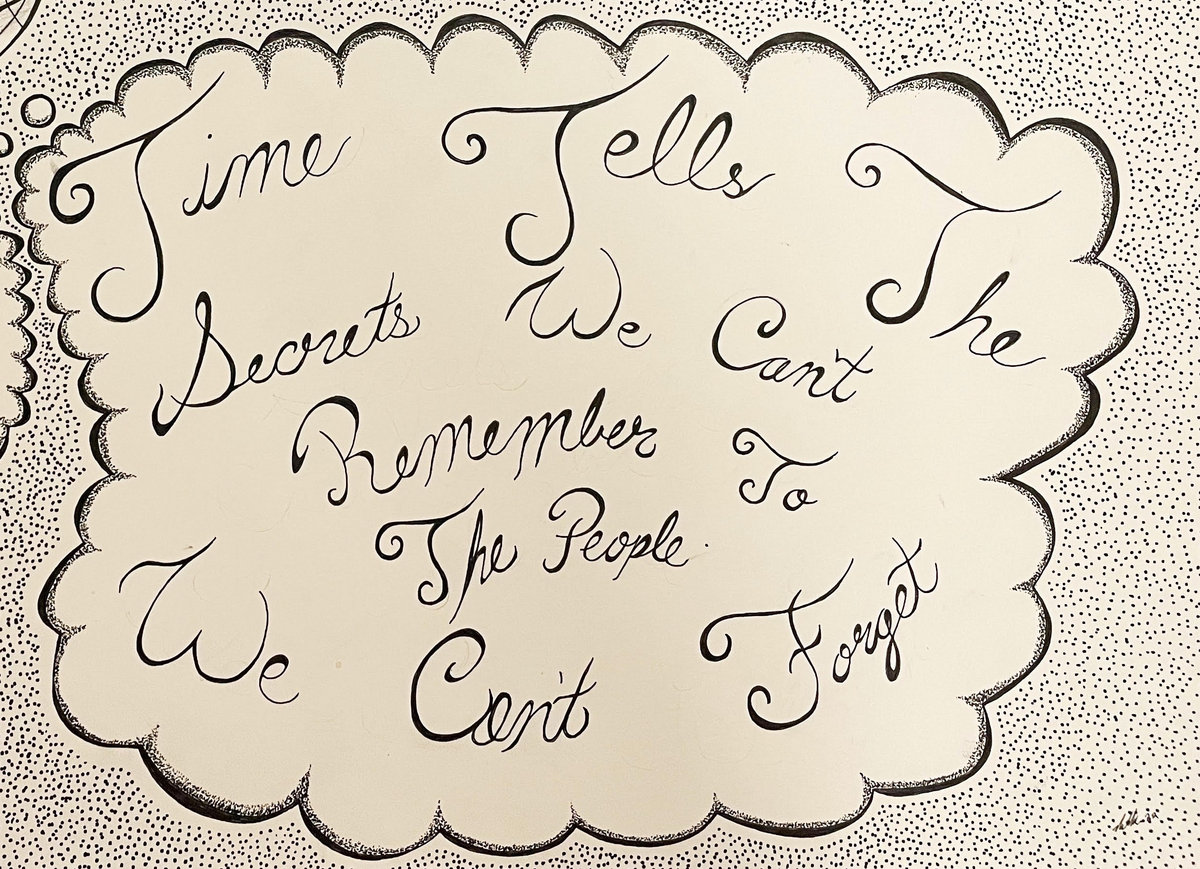 Time Tells The
Secrets We Can't
Remember To
The People
We Can't Forget